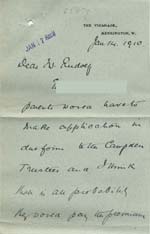 THE VICARAGE,
KENSINGTON, W.
Jan 14, 1910
JAN. 17
Dear Dr Rudolf
parents would have to
make application in
due form to the Campden
Trustees and I think
that in all probability
they would pay the premium